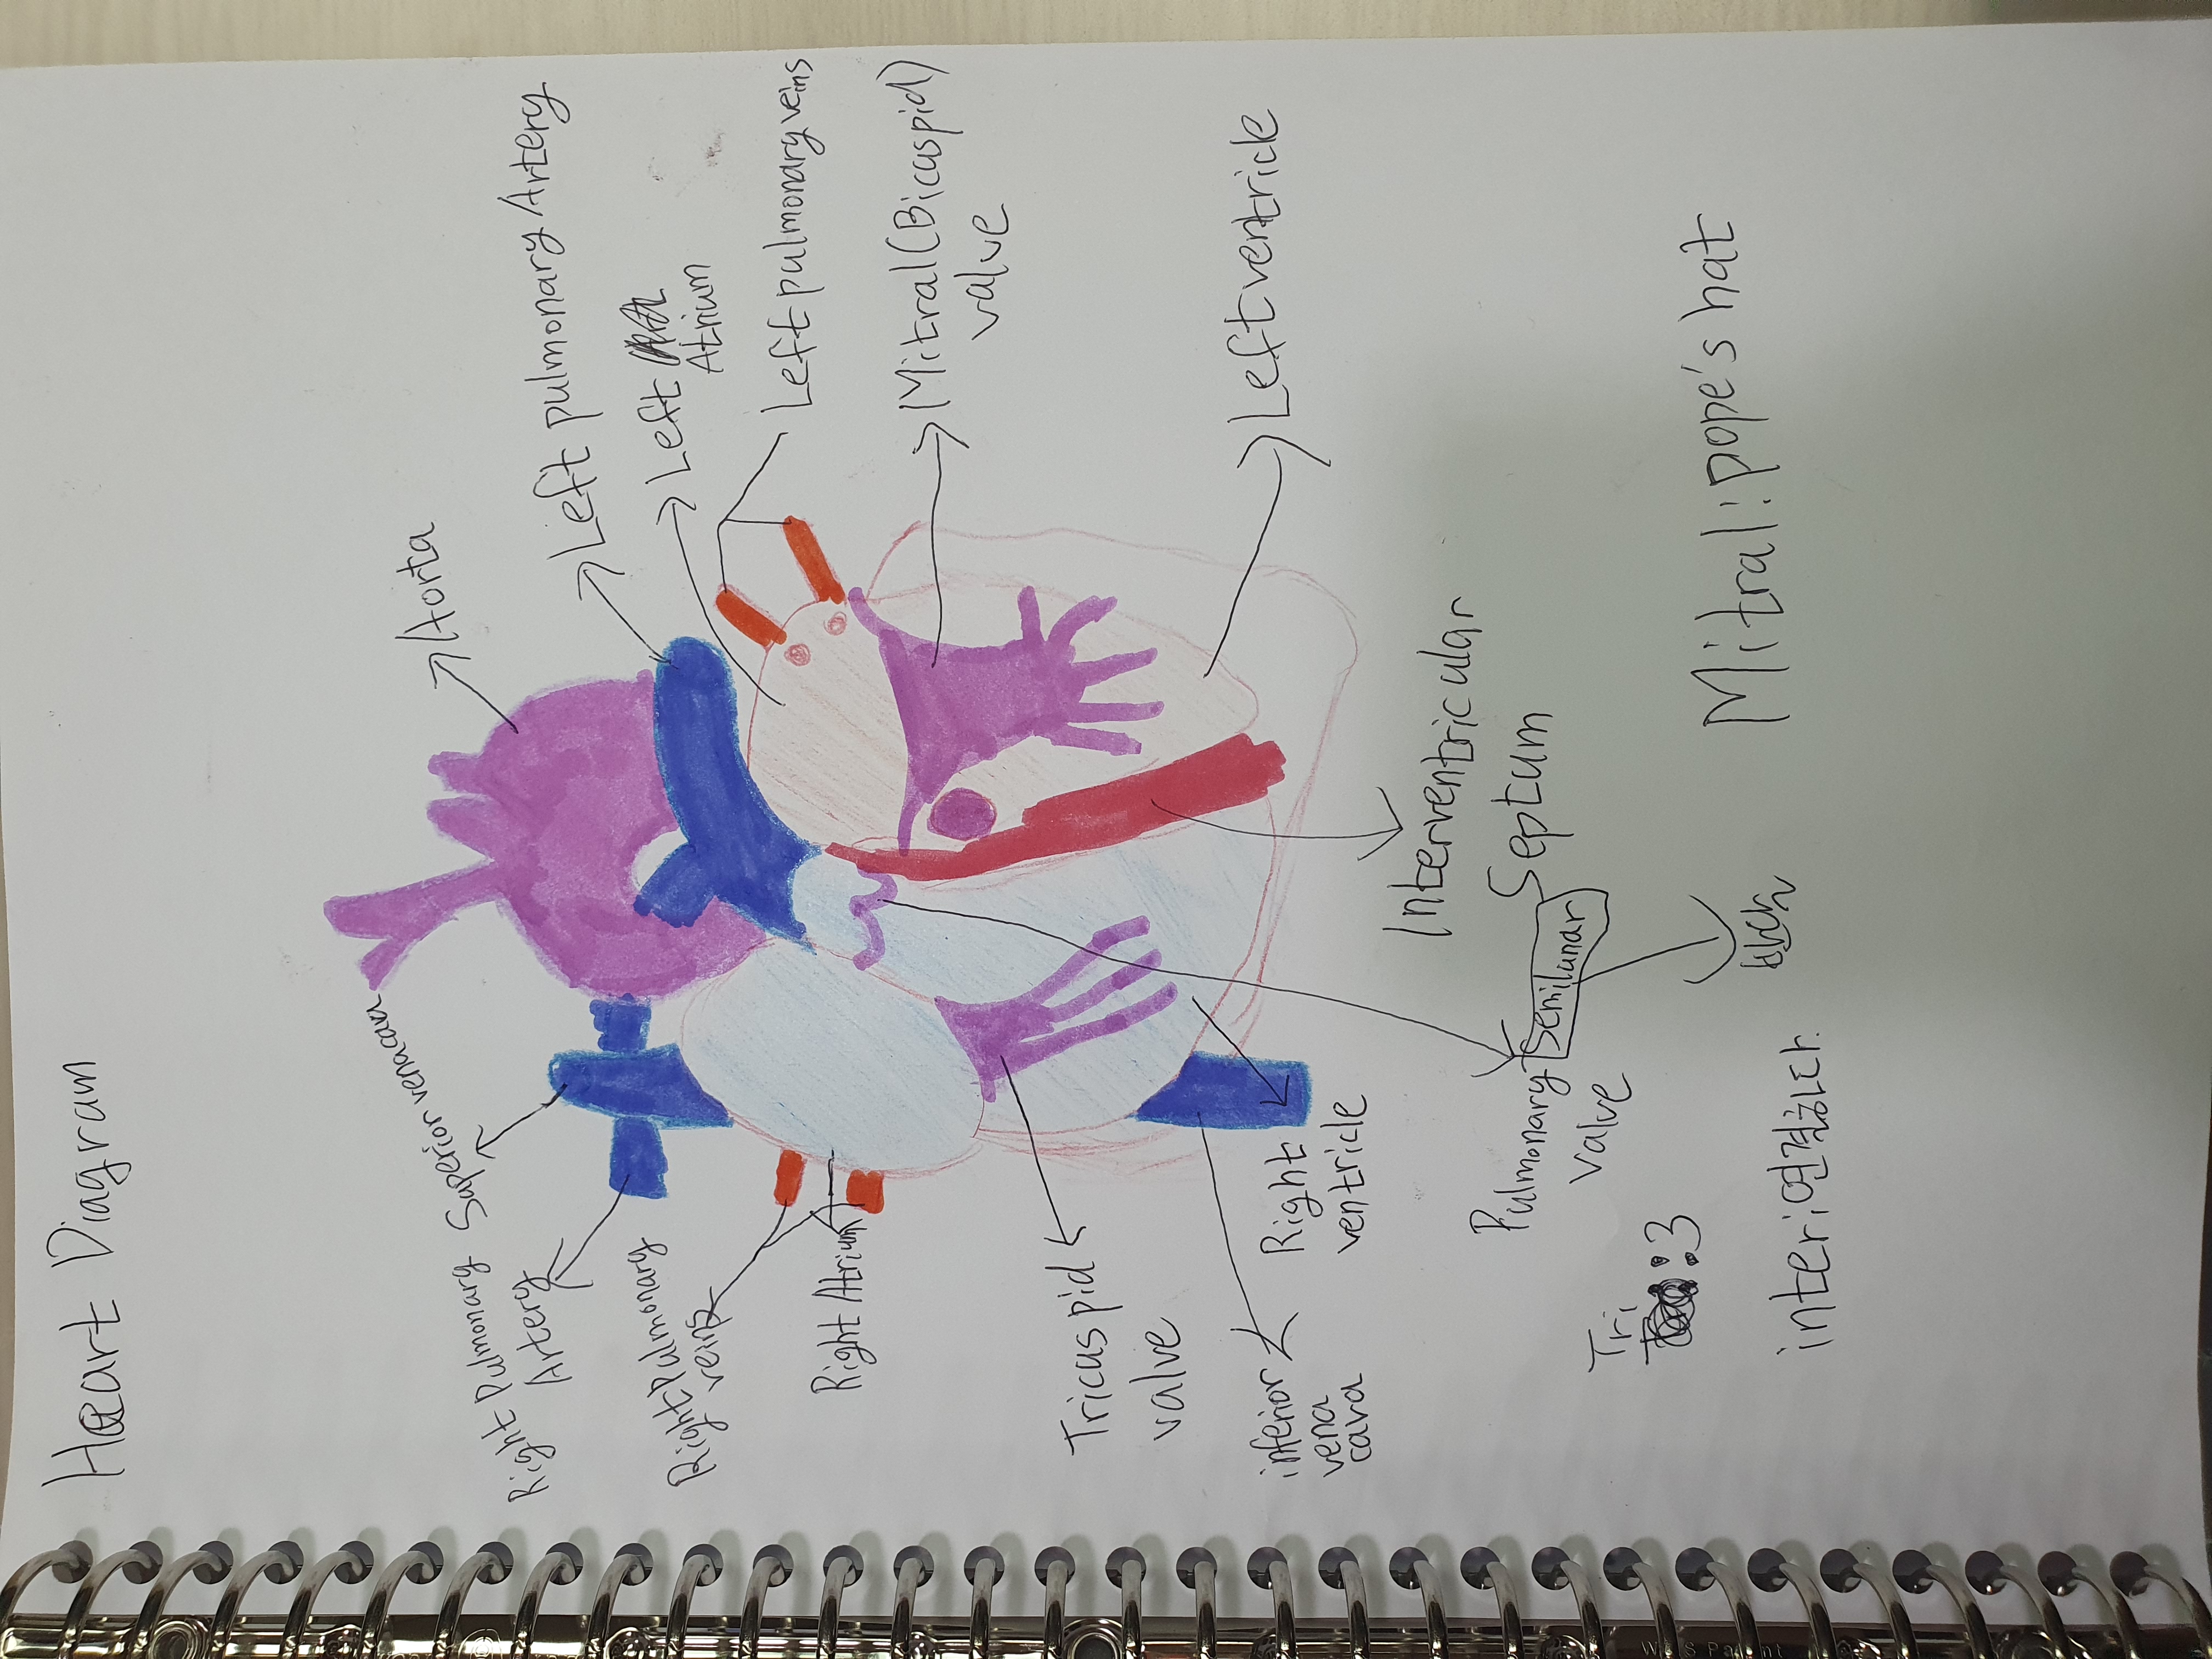 Heart Diagram
Aorta
Superior vena cava
Right Pulmonary
Artery
Left pulmonary Artery
Left
Atrium
Right Pulmonary
veins
Left pulmonary veins
Right Atrium
Mitral (Bicuspid)
valve
Tricuspid
valve
Left ventricle
inferior
vena
cava
Right
ventricle
Interventricular
Septum
Pulmonary Semilunar
valve
Tri
:3
Mitral: pope's hat
inter: 연결하다